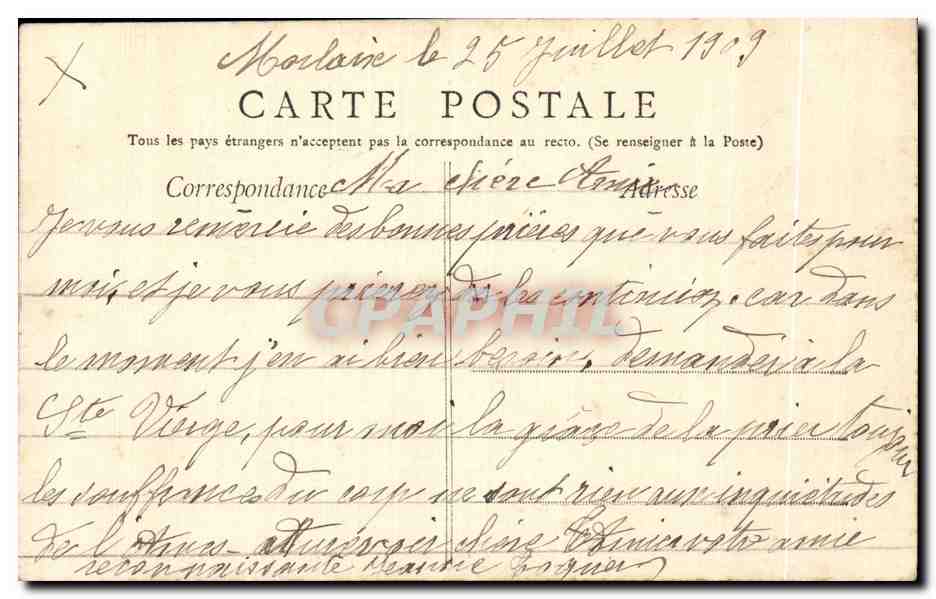 Morlaix le 25 Juillet 1909
CARTE POSTALE
Tous les pays étrangers n'acceptent pas la correspondance au recto. (Se renseigner à la Poste)
Correspondance Ma chère Amie Adresse
Je vous remercie des bonnes prières que vous faites pour
moi, et je vous prierez de les continuez. car dans
le moment j'en ai bien besoin. demandez à la
Ste Vierge, pour moi la grâce de la prier toujours
les souffrances du corp ne sont rien aux inquiétudes
de l'Ames. Aurevoir chère Amie votre amie
reconnaissante Jeanne
CPAPHIL